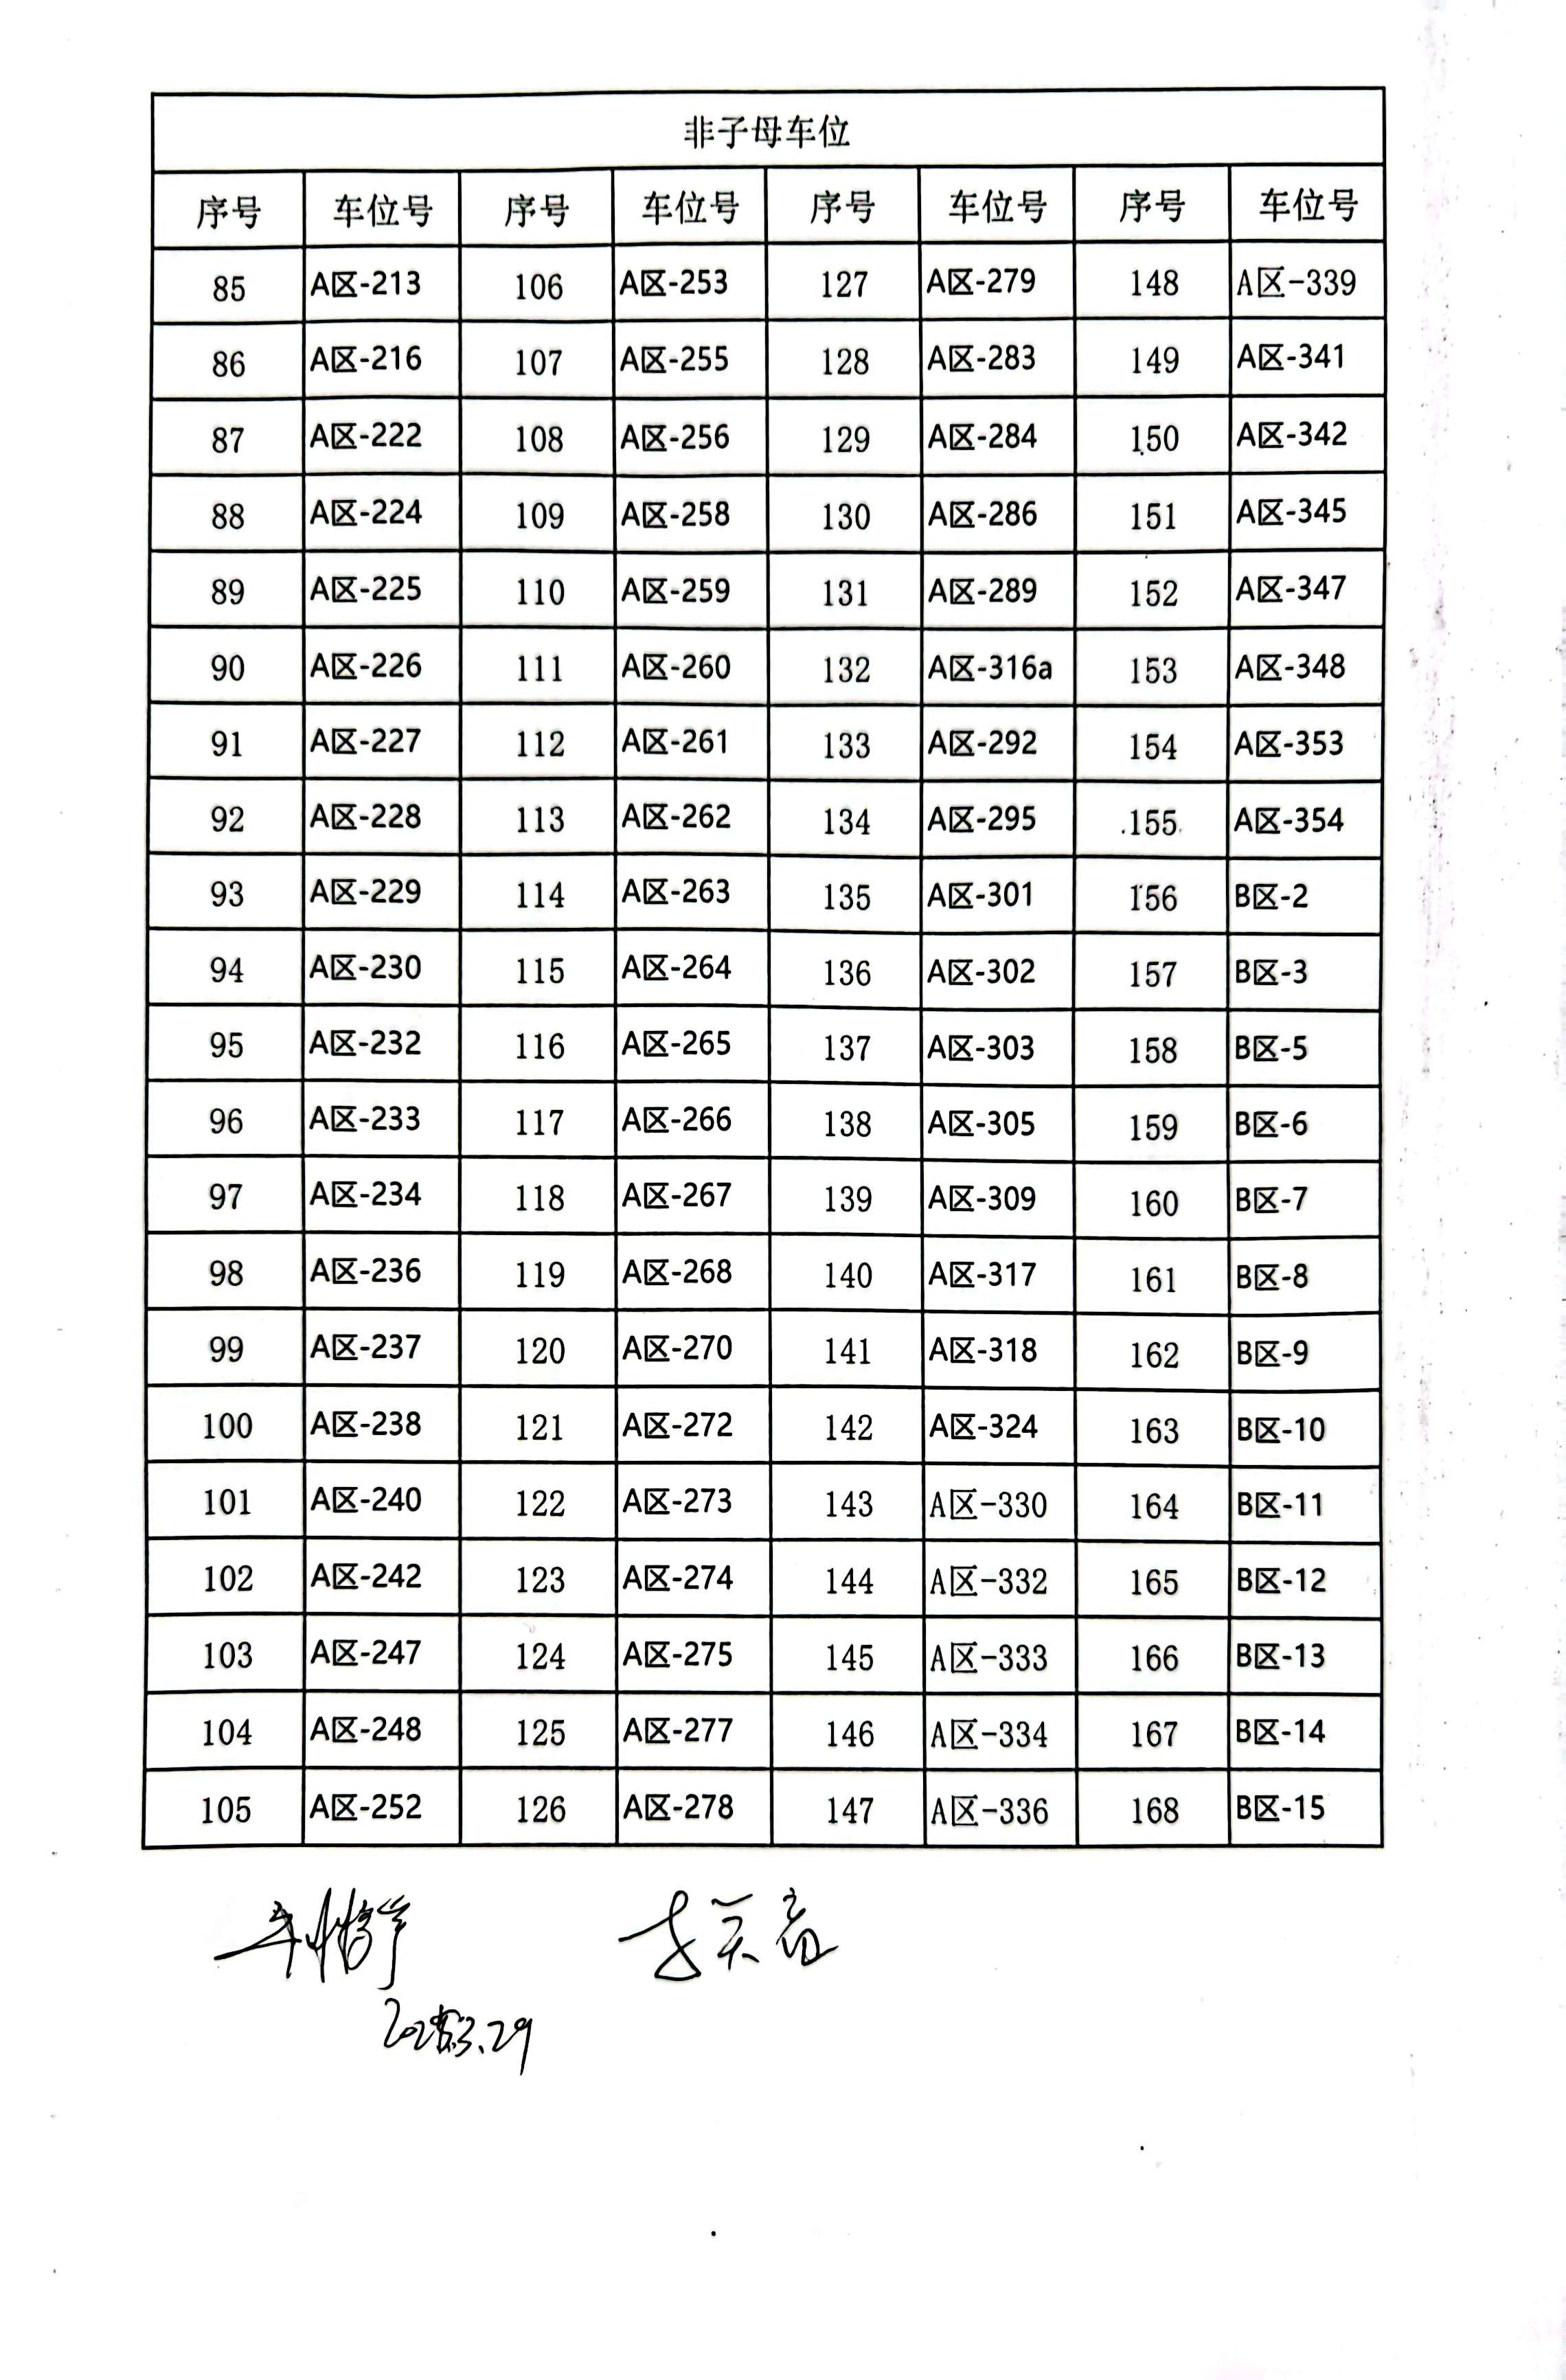 非子母车位
序号 车位号 序号 车位号 序号 车位号 序号 车位号
85 A区-213 106 A区-253 127 A区-279 148 A区-339
86 A区-216 107 A区-255 128 A区-283 149 A区-341
87 A区-222 108 A区-256 129 A区-284 150 A区-342
88 A区-224 109 A区-258 130 A区-286 151 A区-345
89 A区-225 110 A区-259 131 A区-289 152 A区-347
90 A区-226 111 A区-260 132 A区-316a 153 A区-348
91 A区-227 112 A区-261 133 A区-292 154 A区-353
92 A区-228 113 A区-262 134 A区-295 155 A区-354
93 A区-229 114 A区-263 135 A区-301 156 B区-2
94 A区-230 115 A区-264 136 A区-302 157 B区-3
95 A区-232 116 A区-265 137 A区-303 158 B区-5
96 A区-233 117 A区-266 138 A区-305 159 B区-6
97 A区-234 118 A区-267 139 A区-309 160 B区-7
98 A区-236 119 A区-268 140 A区-317 161 B区-8
99 A区-237 120 A区-270 141 A区-318 162 B区-9
100 A区-238 121 A区-272 142 A区-324 163 B区-10
101 A区-240 122 A区-273 143 A区-330 164 B区-11
102 A区-242 123 A区-274 144 A区-332 165 B区-12
103 A区-247 124 A区-275 145 A区-333 166 B区-13
104 A区-248 125 A区-277 146 A区-334 167 B区-14
105 A区-252 126 A区-278 147 A区-336 168 B区-15